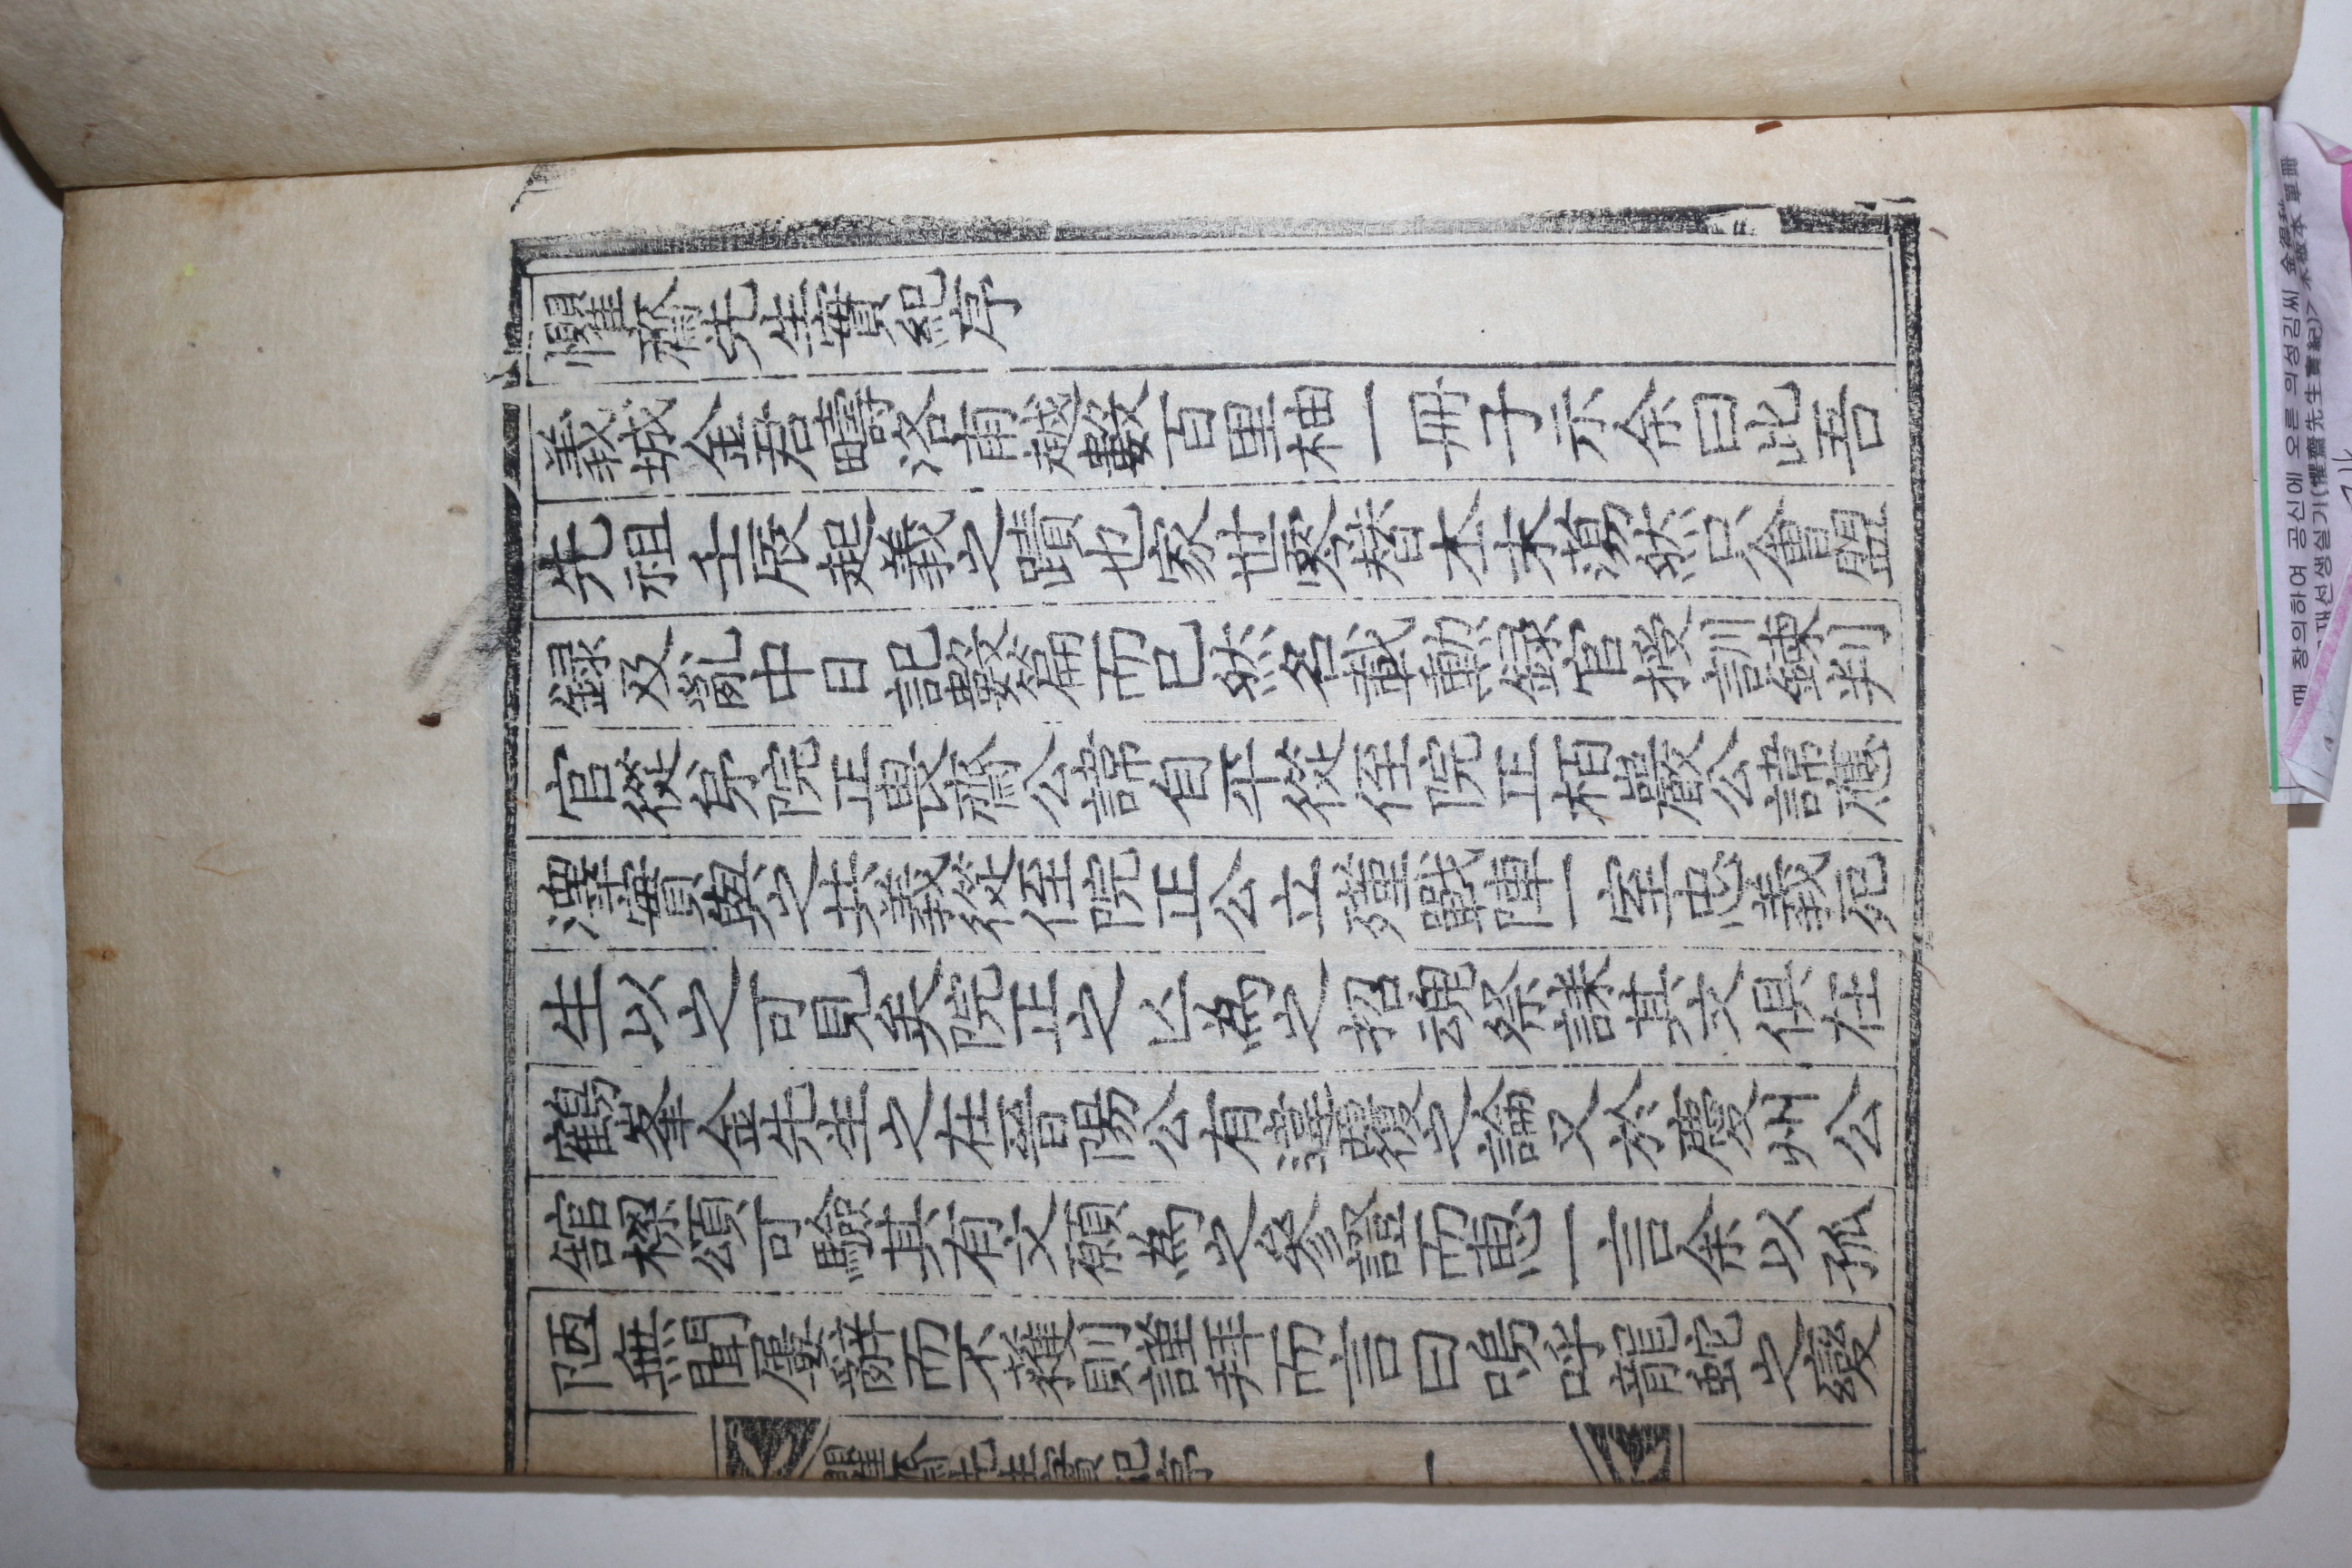 懼齋先生實紀序
義城金君疇洛甫越數百里袖一冊子示余曰此吾
先祖壬辰起義之蹟也家世零替本末蕩然只會盟
録及亂中日記數篇而已然名載勲録官授訓鍊判
官從弟院正畏齋公諱自平從侄院正栢巖公諱應
澤實與之共義從侄院正公立殣戰陣一室忠義死
生以之可見矣院正之亾為之招魂祭誄其文俱在
鶴峯金先生之在晉陽公有違覆之論又於慶州公
舘樑頌可驗其有文願為之參證而惠一言余以孤
陋無聞屢辭而不獲則謹拜而言曰嗚呼龍蛇之變
懼齋先生實紀序
一
때 창의하여 공신에 오른 의성김씨 金得秋
재선생실기(懼齋先生實紀)> 木板本 單冊